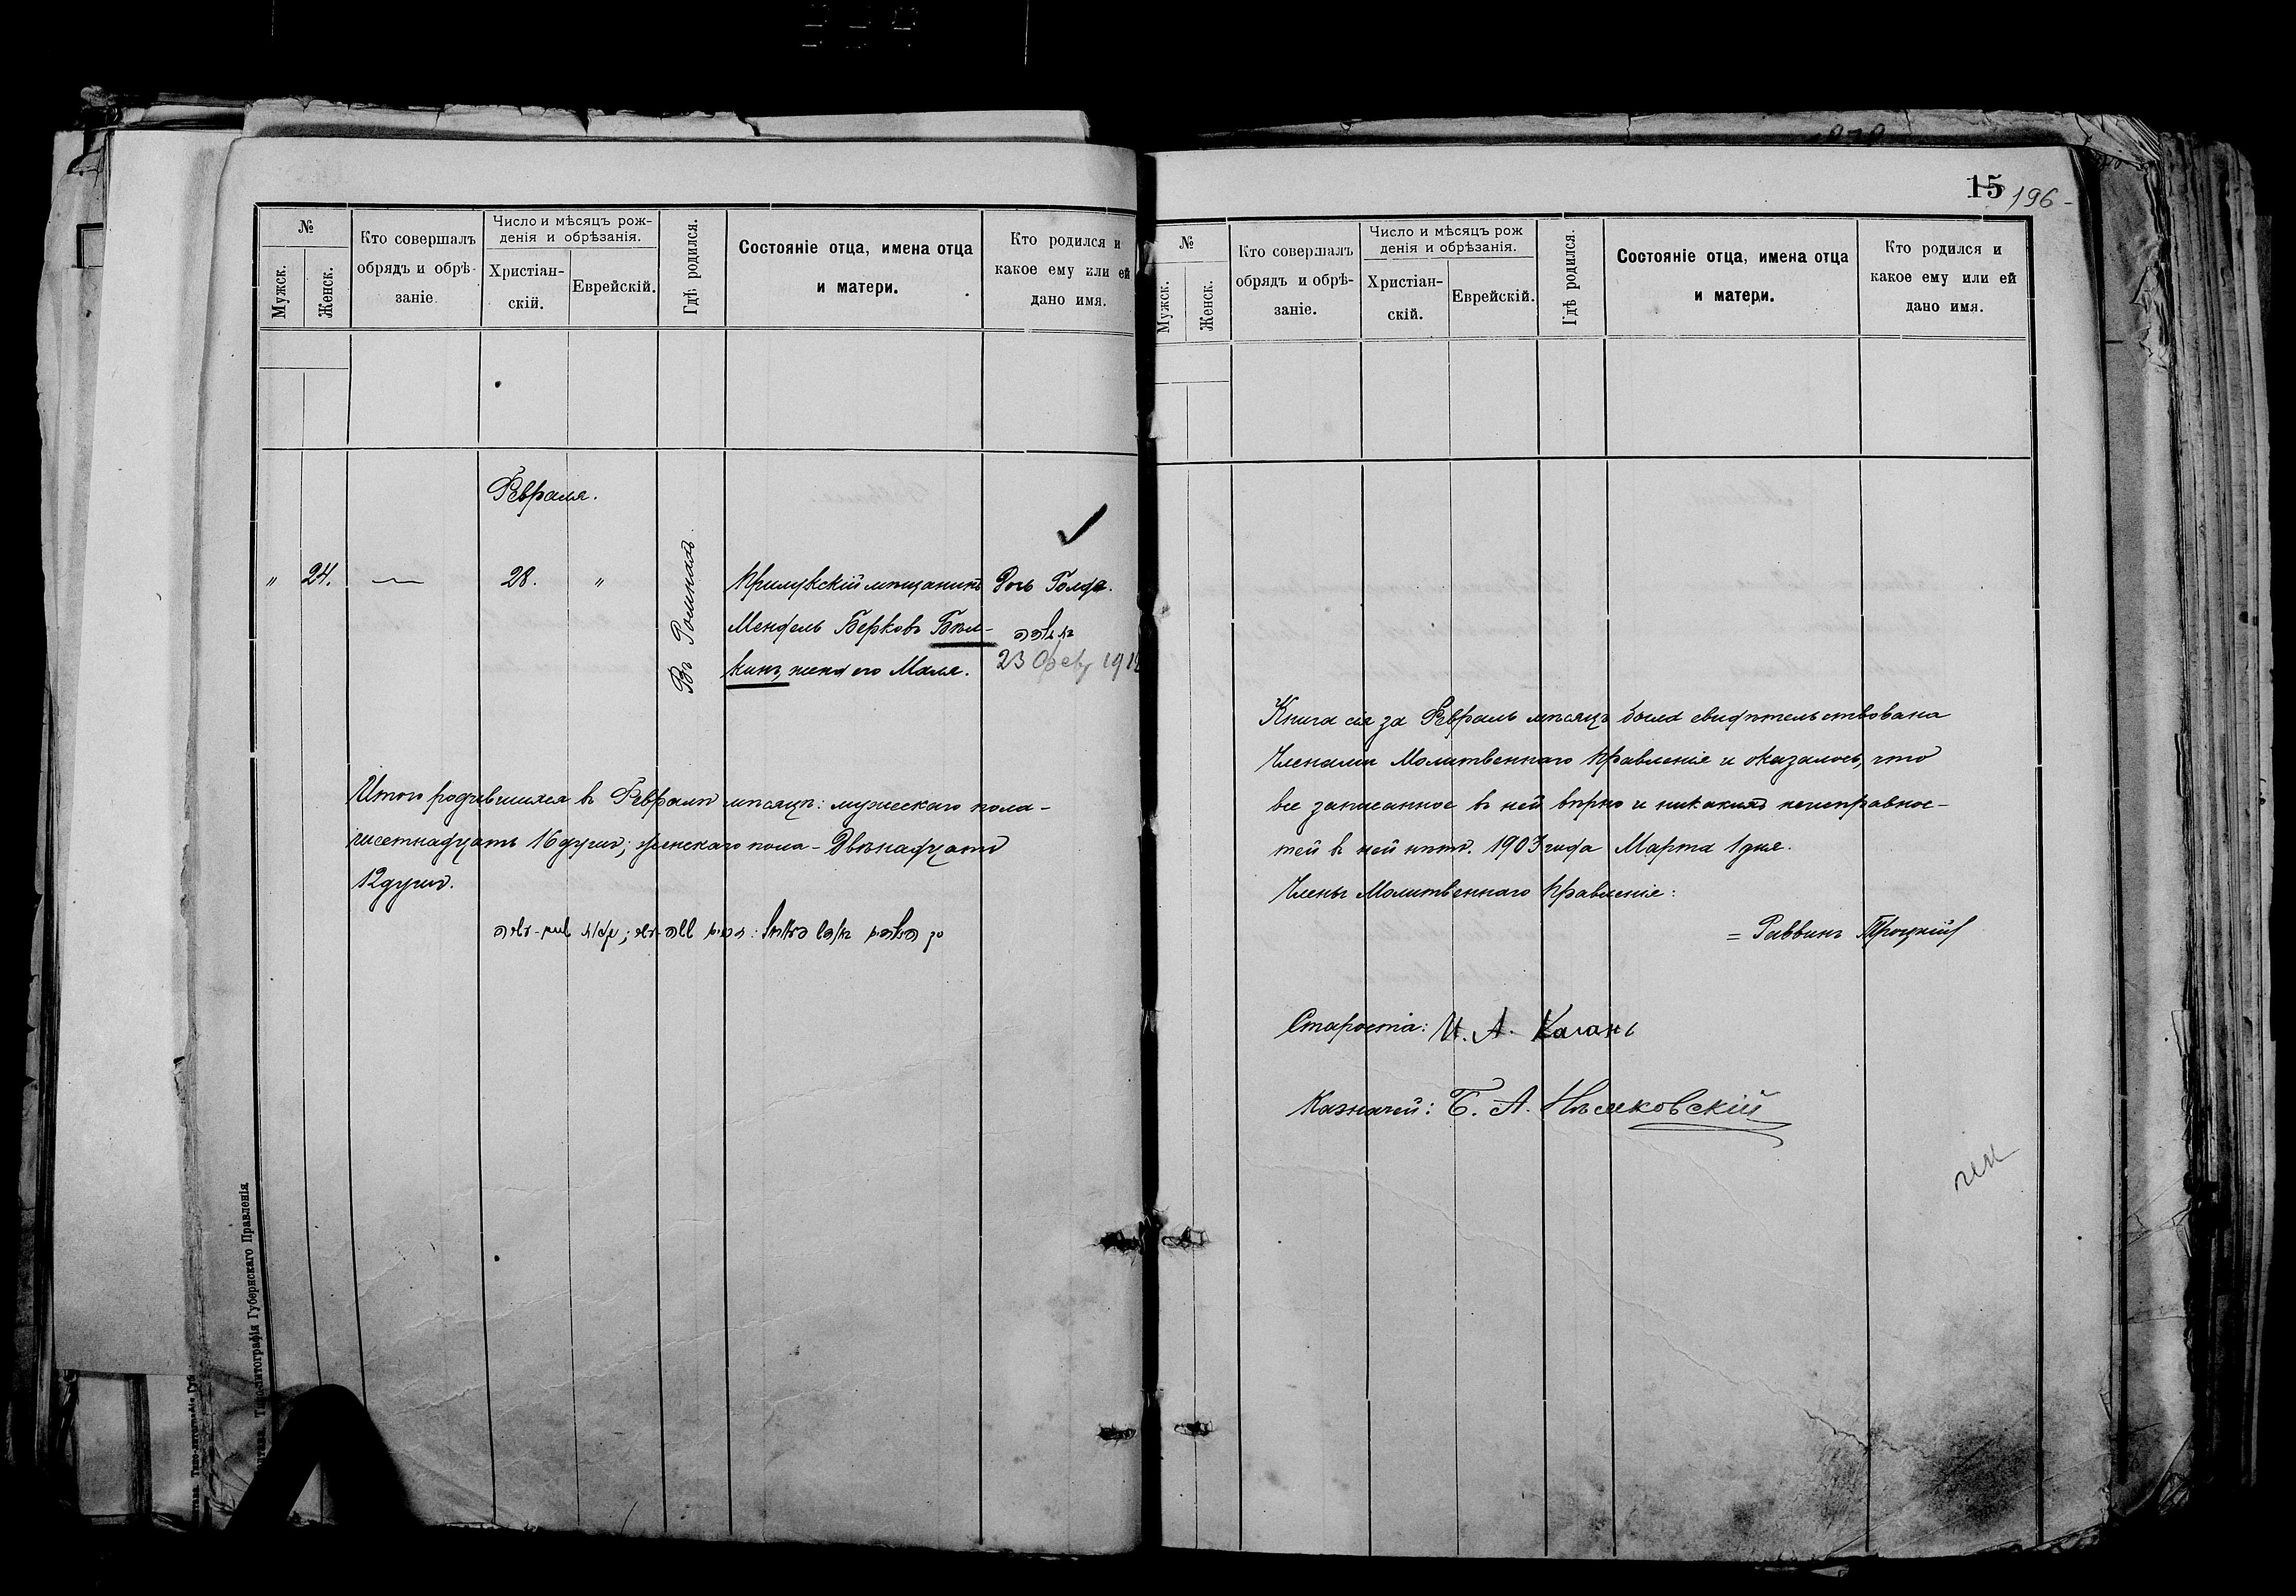 №
Мужск.
Женск.
Кто совершалъ
обрядъ и обрѣ-
заніе.
Число и мѣсяцъ рож-
денія и обрѣзанія.
Христіан-
скій.
Еврейскій.
Гдѣ родился.
Состояніе отца, имена отца
и матери.
Кто родился и
какое ему или ей
дано имя.
Февраля.
„ 24. — 28. „
Въ Ромнахъ
Прилукскій мѣщанинъ
Мендель Берковъ Бѣл-
кинъ, жена его Маля.
Дочь Голда.
23 1912
Итого родившихся въ Февралѣ мѣсяцѣ: мужескаго пола-
шестнадцать 16 душъ; женскаго пола - Двѣнадцать
12 душъ.
Типо-литографія Губернскаго Правленія
15 196
№
Мужск.
Женск.
Кто совершалъ
обрядъ и обрѣ-
заніе.
Число и мѣсяцъ рож
денія и обрѣзанія.
Христіан-
скій.
Еврейскій.
Гдѣ родился.
Состояніе отца, имена отца
и матери.
Кто родился и
какое ему или ей
дано имя.
Книга сія за Февраль мѣсяцъ была свидѣтельствована
Членами Молитвеннаго Правленія и оказалось, что
все записанное въ ней вѣрно и никакихъ неисправнос-
тей въ ней нѣтъ. 1903 года Марта 1 дня.
Члены Молитвеннаго Правленія:
= Раввинъ Троцкій
Староста: И. А. Каганъ
Казначей: Б. А.